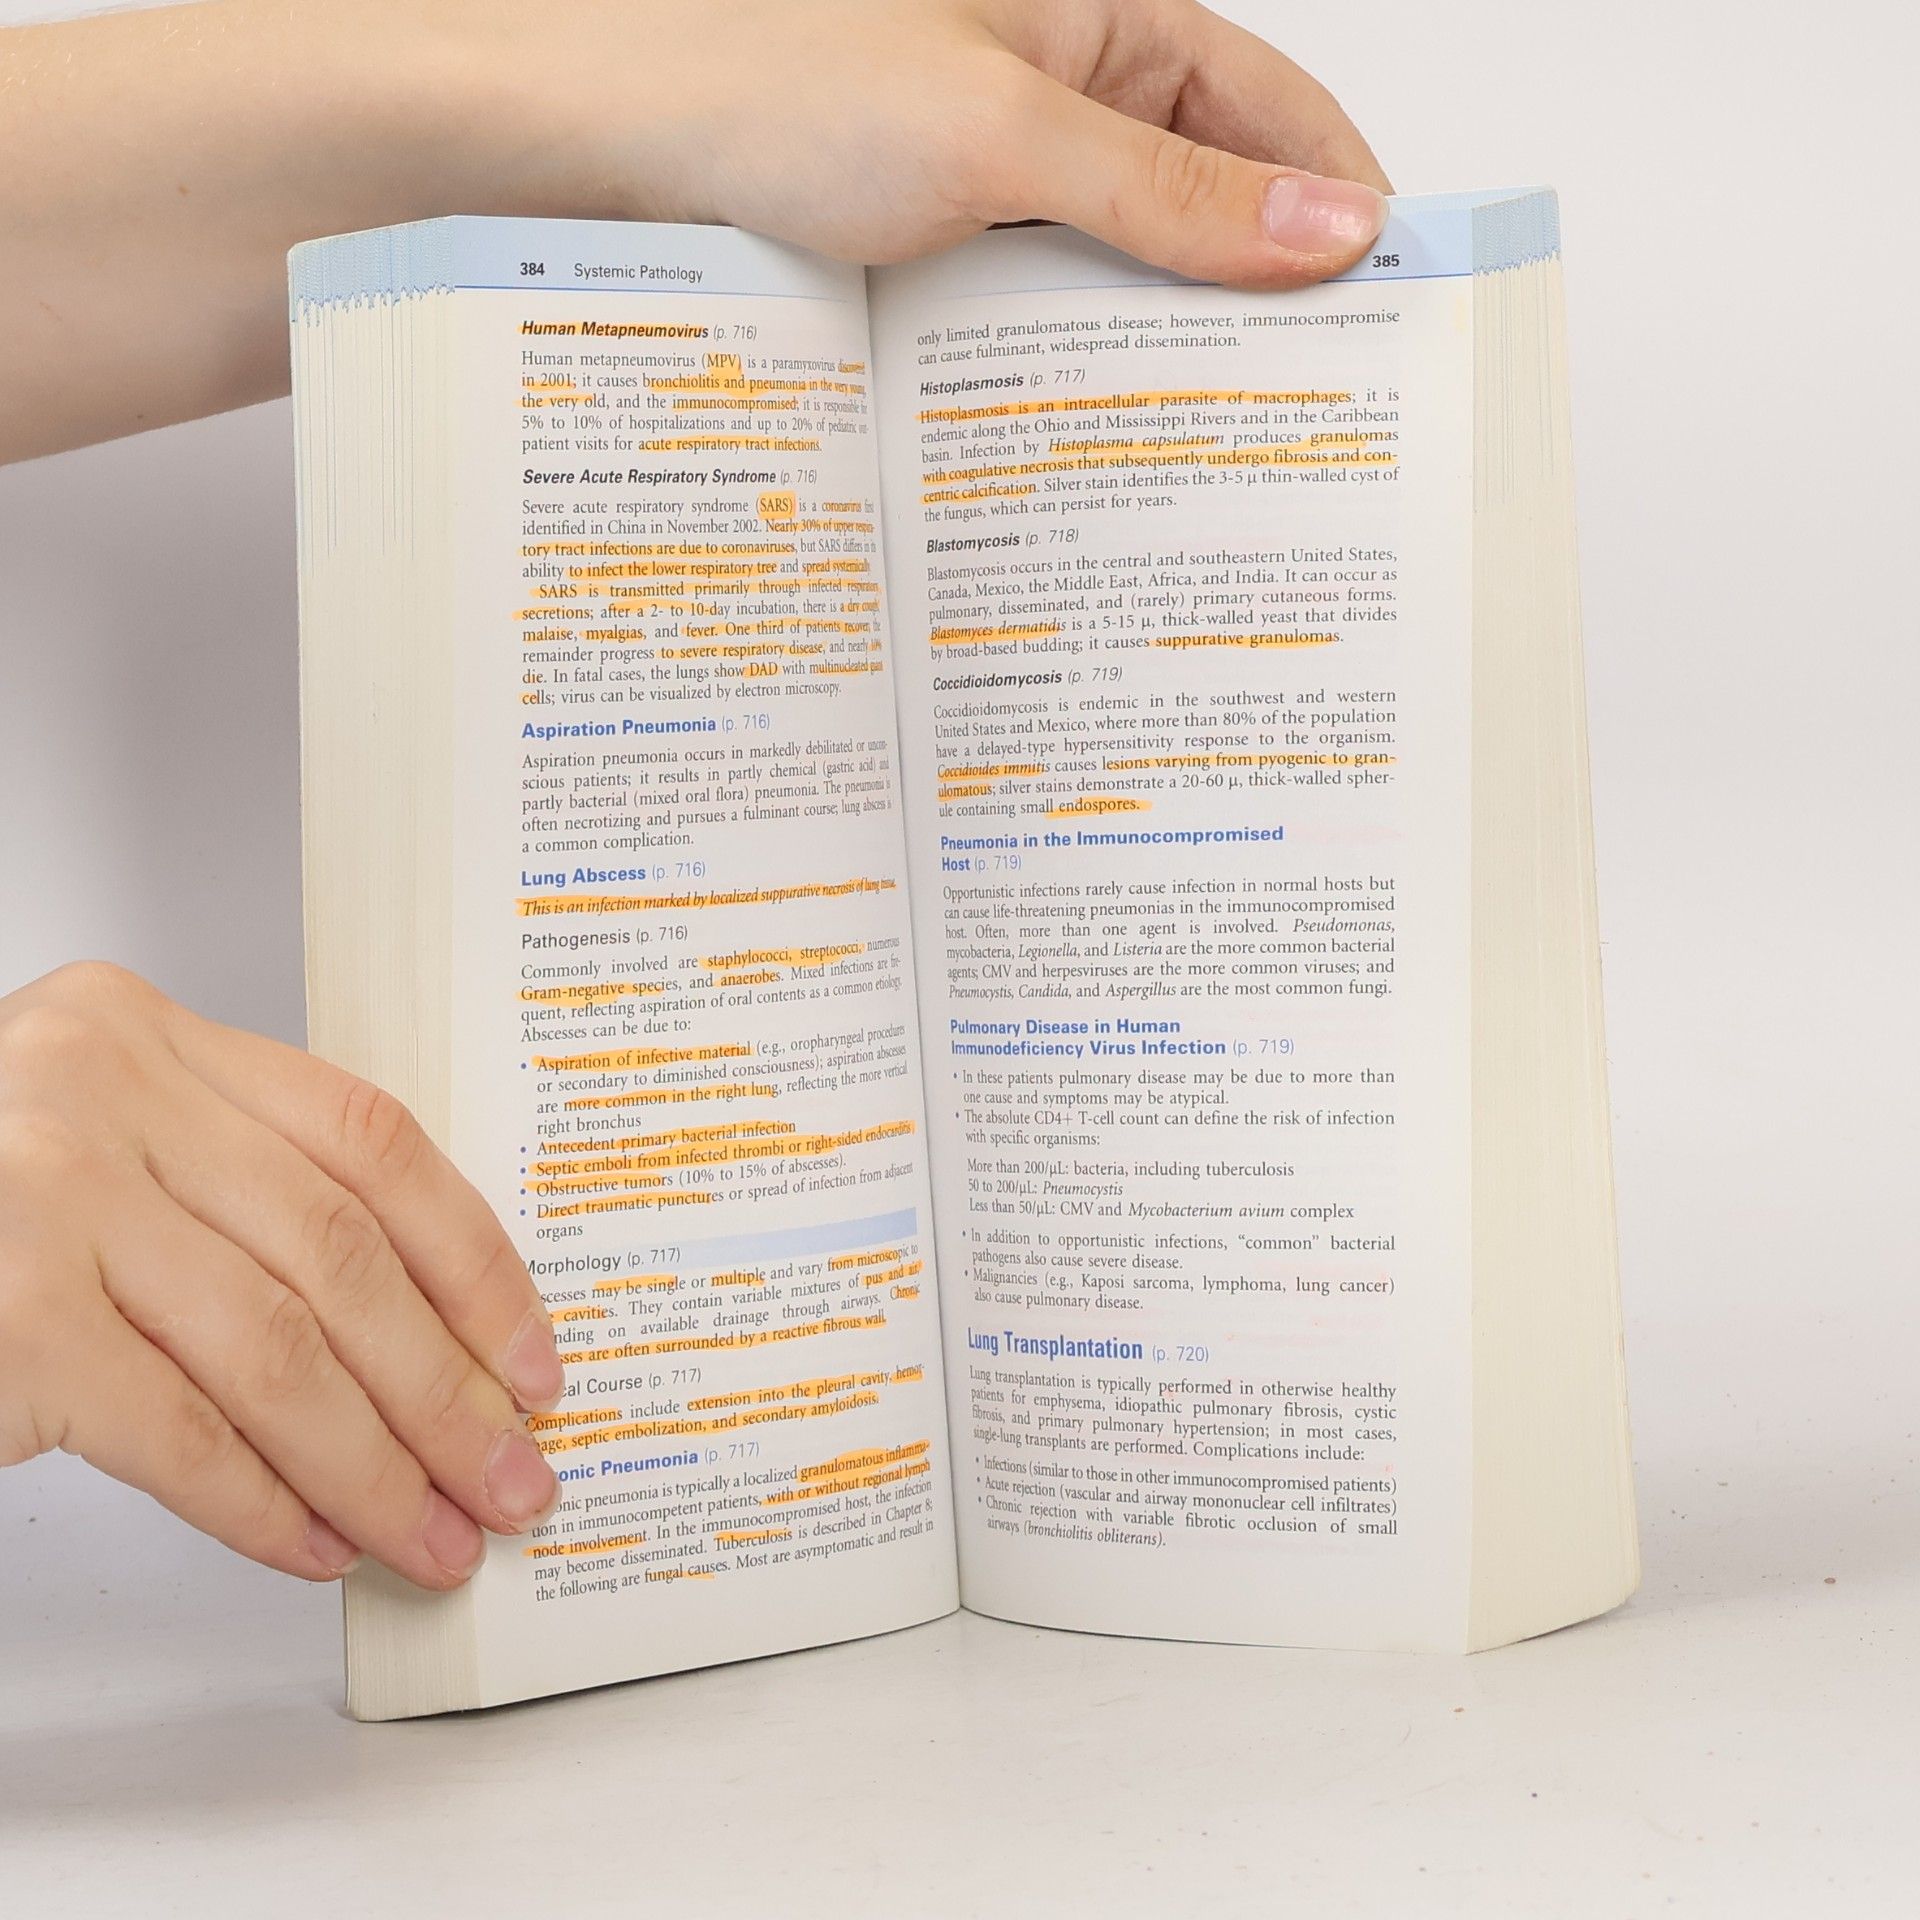 384 Systemic Pathology
Human Metapneumovirus (p. 716)
Human metapneumovirus (MPV) is a paramyxovirus discovered
in 2001; it causes bronchiolitis and pneumonia in the very young,
the very old, and the immunocompromised; it is responsible for
5% to 10% of hospitalizations and up to 20% of pediatric out-
patient visits for acute respiratory tract infections.
Severe Acute Respiratory Syndrome (p. 716)
Severe acute respiratory syndrome (SARS) is a coronavirus first
identified in China in November 2002. Nearly 30% of upper respira-
tory tract infections are due to coronaviruses, but SARS differs in its
ability to infect the lower respiratory tree and spread systemically.
SARS is transmitted primarily through infected respiratory
secretions; after a 2- to 10-day incubation, there is a dry cough,
malaise, myalgias, and fever. One third of patients recover; the
remainder progress to severe respiratory disease, and nearly 10%
die. In fatal cases, the lungs show DAD with multinucleated giant
cells; virus can be visualized by electron microscopy.
Aspiration Pneumonia (p. 716)
Aspiration pneumonia occurs in markedly debilitated or uncon-
scious patients; it results in partly chemical (gastric acid) and
partly bacterial (mixed oral flora) pneumonia. The pneumonia is
often necrotizing and pursues a fulminant course; lung abscess is
a common complication.
Lung Abscess (p. 716)
This is an infection marked by localized suppurative necrosis of lung tissue.
Pathogenesis (p. 716)
Commonly involved are staphylococci, streptococci, numerous
Gram-negative species, and anaerobes. Mixed infections are fre-
quent, reflecting aspiration of oral contents as a common etiology.
Abscesses can be due to:
• Aspiration of infective material (e.g., oropharyngeal procedures
or secondary to diminished consciousness); aspiration abscesses
are more common in the right lung, reflecting the more vertical
right bronchus
• Antecedent primary bacterial infection
• Septic emboli from infected thrombi or right-sided endocarditis
• Obstructive tumors (10% to 15% of abscesses).
• Direct traumatic punctures or spread of infection from adjacent
organs
Morphology (p. 717)
scesses may be single or multiple and vary from microscopic to
cavities. They contain variable mixtures of pus and air,
nding on available drainage through airways. Chronic
sses are often surrounded by a reactive fibrous wall.
cal Course (p. 717)
Complications include extension into the pleural cavity, hemor-
age, septic embolization, and secondary amyloidosis.
onic Pneumonia (p. 717)
onic pneumonia is typically a localized granulomatous inflamma-
tion in immunocompetent patients, with or without regional lymph
node involvement. In the immunocompromised host, the infection
may become disseminated. Tuberculosis is described in Chapter 8;
the following are fungal causes. Most are asymptomatic and result in
385
only limited granulomatous disease; however, immunocompromise
can cause fulminant, widespread dissemination.
Histoplasmosis (p. 717)
Histoplasmosis is an intracellular parasite of macrophages; it is
endemic along the Ohio and Mississippi Rivers and in the Caribbean
basin. Infection by Histoplasma capsulatum produces granulomas
with coagulative necrosis that subsequently undergo fibrosis and con-
centric calcification. Silver stain identifies the 3-5 μ thin-walled cyst of
the fungus, which can persist for years.
Blastomycosis (p. 718)
Blastomycosis occurs in the central and southeastern United States,
Canada, Mexico, the Middle East, Africa, and India. It can occur as
pulmonary, disseminated, and (rarely) primary cutaneous forms.
Blastomyces dermatidis is a 5-15 μ, thick-walled yeast that divides
by broad-based budding; it causes suppurative granulomas.
Coccidioidomycosis (p. 719)
Coccidioidomycosis is endemic in the southwest and western
United States and Mexico, where more than 80% of the population
have a delayed-type hypersensitivity response to the organism.
Coccidioides immitis causes lesions varying from pyogenic to gran-
ulomatous; silver stains demonstrate a 20-60 μ, thick-walled spher-
ule containing small endospores.
Pneumonia in the Immunocompromised
Host (p. 719)
Opportunistic infections rarely cause infection in normal hosts but
can cause life-threatening pneumonias in the immunocompromised
host. Often, more than one agent is involved. Pseudomonas,
mycobacteria, Legionella, and Listeria are the more common bacterial
agents; CMV and herpesviruses are the more common viruses; and
Pneumocystis, Candida, and Aspergillus are the most common fungi.
Pulmonary Disease in Human
Immunodeficiency Virus Infection (p. 719)
• In these patients pulmonary disease may be due to more than
one cause and symptoms may be atypical.
• The absolute CD4+ T-cell count can define the risk of infection
with specific organisms:
More than 200/μL: bacteria, including tuberculosis
50 to 200/μL: Pneumocystis
Less than 50/μL: CMV and Mycobacterium avium complex
• In addition to opportunistic infections, “common” bacterial
pathogens also cause severe disease.
• Malignancies (e.g., Kaposi sarcoma, lymphoma, lung cancer)
also cause pulmonary disease.
Lung Transplantation (p. 720)
Lung transplantation is typically performed in otherwise healthy
patients for emphysema, idiopathic pulmonary fibrosis, cystic
fibrosis, and primary pulmonary hypertension; in most cases,
single-lung transplants are performed. Complications include:
• Infections (similar to those in other immunocompromised patients)
• Acute rejection (vascular and airway mononuclear cell infiltrates)
• Chronic rejection with variable fibrotic occlusion of small
airways (bronchiolitis obliterans).